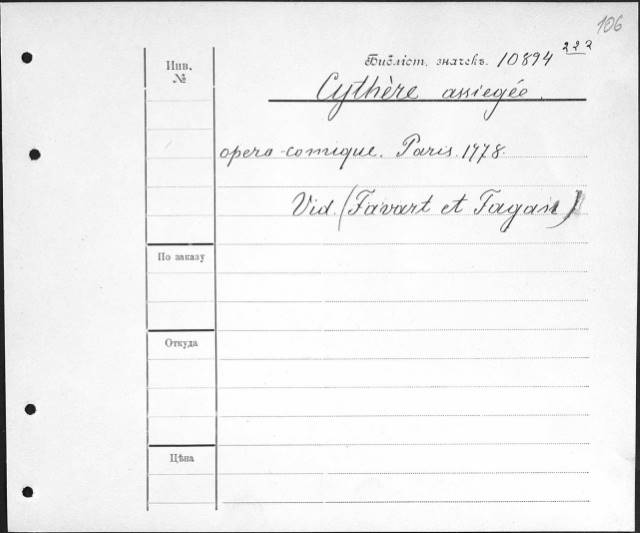 106
Инв. №
Библіот. значекъ. 10894 222
Cythère assiegée.
opera-comique. Paris. 1778.
Vid. (Favart et Fagan)
По заказу
Откуда
Цѣна